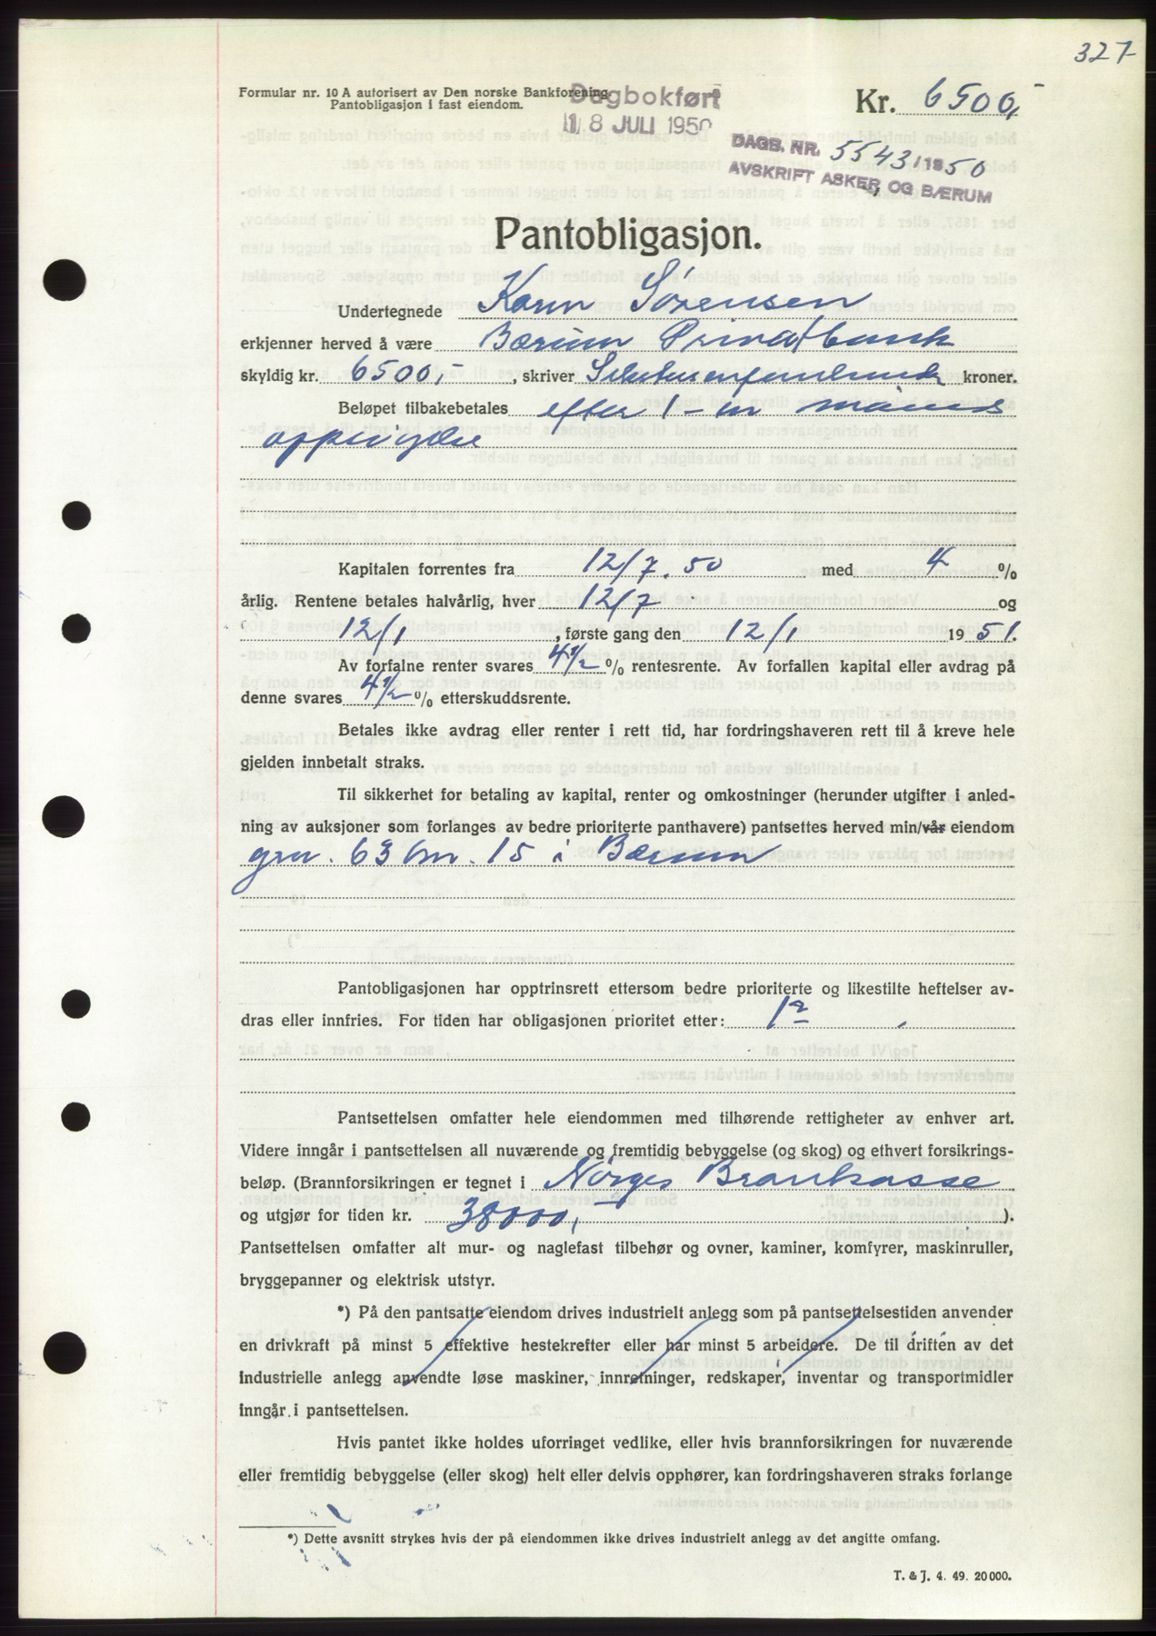 327
Formular nr. 10 A autorisert av Den norske Bankforening
Pantobligasjon i fast eiendom.
Dagbokført
18 JULI 1950
Kr. 6500,-
DAGB. NR. 5543/1950
AVSKRIFT ASKER OG BÆRUM
Pantobligasjon.
Undertegnede Karin Sørensen
erkjenner herved å være Bærum Privatbank
skyldig kr. 6500,- , skriver kroner.
Beløpet tilbakebetales efter 1 - en måneds
oppsigelse
Kapitalen forrentes fra 12/7. 50 med 4 %
årlig. Rentene betales halvårlig, hver 12/7 og
12/1 , første gang den 12/1 1951.
Av forfalne renter svares 4 1/2 % rentesrente. Av forfallen kapital eller avdrag på
denne svares 4 1/2 % etterskuddsrente.
Betales ikke avdrag eller renter i rett tid, har fordringshaveren rett til å kreve hele
gjelden innbetalt straks.
Til sikkerhet for betaling av kapital, renter og omkostninger (herunder utgifter i anled-
ning av auksjoner som forlanges av bedre prioriterte panthavere) pantsettes herved min/vår eiendom
gnr. 63 bnr. 15 i Bærum
Pantobligasjonen har opptrinsrett ettersom bedre prioriterte og likestilte heftelser av-
dras eller innfries. For tiden har obligasjonen prioritet etter: 1ste
Pantsettelsen omfatter hele eiendommen med tilhørende rettigheter av enhver art.
Videre inngår i pantsettelsen all nuværende og fremtidig bebyggelse (og skog) og ethvert forsikrings-
beløp. (Brannforsikringen er tegnet i Norges Brannkasse
og utgjør for tiden kr. 38000,- ).
Pantsettelsen omfatter alt mur- og naglefast tilbehør og ovner, kaminer, komfyrer, maskinruller,
bryggepanner og elektrisk utstyr.
*) På den pantsatte eiendom drives industrielt anlegg som på pantsettelsestiden anvender
en drivkraft på minst 5 effektive hestekrefter eller har minst 5 arbeidere. De til driften av det
industrielle anlegg anvendte løse maskiner, innretninger, redskaper, inventar og transportmidler
inngår i pantsettelsen.
Hvis pantet ikke holdes uforringet vedlike, eller hvis brannforsikringen for nuværende
eller fremtidig bebyggelse (eller skog) helt eller delvis opphører, kan fordringshaveren straks forlange
*) Dette avsnitt strykes hvis der på eiendommen ikke drives industrielt anlegg av det angitte omfang.
T. & J. 4. 49. 20000.